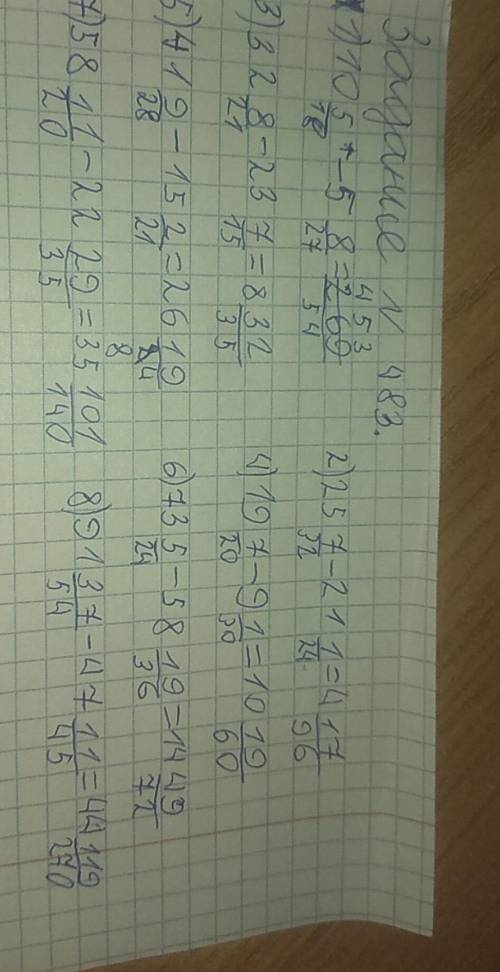 Задание N 483.
1) 10 5/18 - 5 8/27 = 4 53/54
2) 25 7/32 - 21 1/24 = 4 17/96
3) 32 8/21 - 23 7/15 = 8 32/35
4) 19 7/20 - 9 1/30 = 10 19/60
5) 41 9/28 - 15 2/21 = 26 19/84
6) 73 5/24 - 58 19/36 = 14 49/72
7) 58 11/20 - 22 29/35 = 35 101/140
8) 91 37/54 - 47 11/45 = 44 119/270